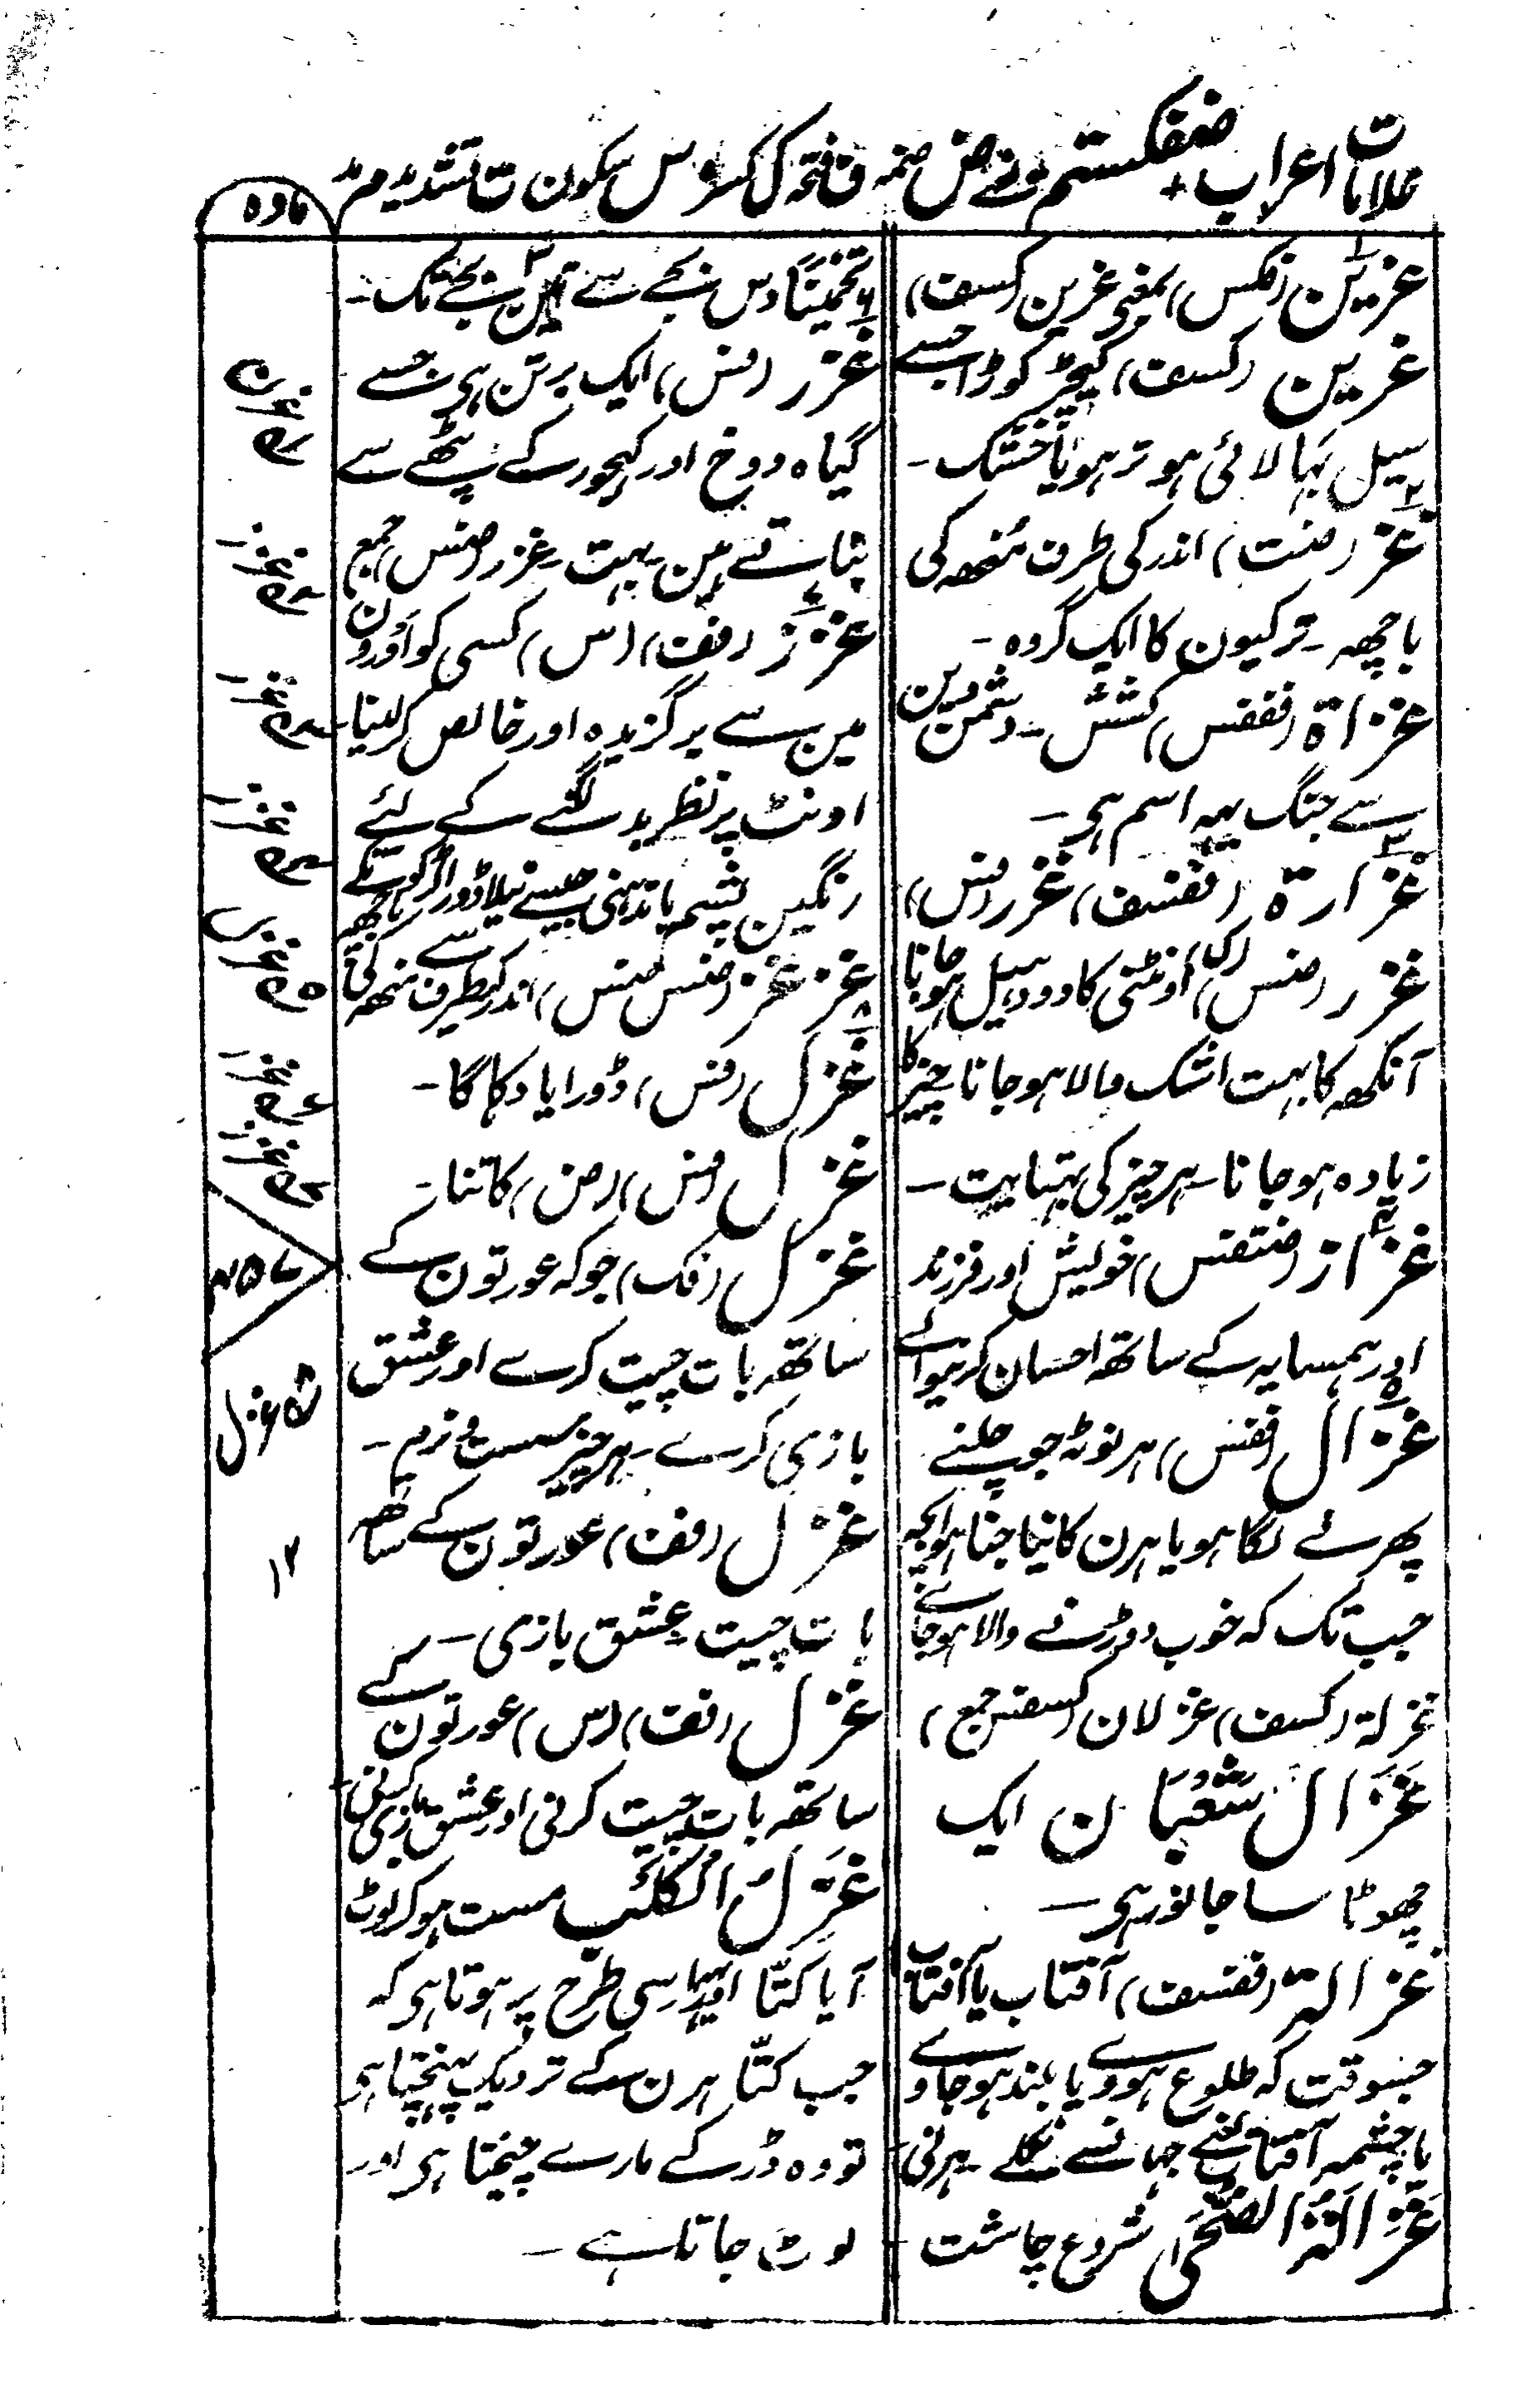 علامات اعراب + ضفکستم یعنے ض ضمہ ف فتحہ ک کسرہ س سکون ت تشدید م مد
مادہ
غرین (فکس) بمعنی غرین (کسف)
غرین (کسف) کیچڑ کوڑا جسے
سیل بہا لائی ہو تر ہو یا خشک ۔
غز (ضت) اندر کی طرف منھہ کی
باچھہ ۔ ترکیون کا ایک گروہ ۔
غزاۃ (ففس) کشش ۔ دشمن دین
سے جنگ یہہ اسم ہی ۔
غزارۃ (ففسف) غزر (فس)
غزر (ضس) (ک) اونٹنی کا دودہیل ہو جانا
آنکھہ کا بہت اشک والا ہو جانا چیز کا
زیادہ ہو جانا ۔ ہر چیز کی بہتایت ۔
غزاز (ضتفس) خویش اور فرزند
اور ہمسایہ کے ساتھہ احسان کرنیوالے
غزال (ففس) ہرنوٹہ جو چلنے
پھرنے لگا ہو یا ہرن کا نیا جنا ہوا بچہ
جب تک کہ خوب دوڑنے والا ہو جائے
غزلۃ (کسف) غزلان (کسفس جمع)
غَزَال شَعْبَان ایک
چھوٹا سا جانور ہی ۔
غزالۃ (ففسف) آفتاب یا آفتاب
جسوقت کہ طلوع ہووے یا بلند ہو جاوے
یا چشمہ آفتاب جہانسے نکلے ۔ ہرنی ۔
غَزَالَۃُ الضُّحٰی شروع چاشت ۔
تخمیناً دس بجے سے بجے تک ۔
غزر (فس) ایک برتن ہی جسے
گیاہ دوخ اور کہجور کے پٹھے سے
بناتے ہین ۔ بہت ۔ غزر (ضس) جمع
غزز (فف) (س) کسی کو اورون
مین سے برگزیدہ اور خالص کر لینا ۔
اونٹ پر نظر بد لگنے کے لئے
رنگین پشم باندہنی جیسے نیلا ڈورا
غزغز (ضس ضس) اندر کیطرف سے منھہ کی باچھہ
غزل (فس) ڈورا یا دہاگا ۔
غزل (فس) (ض) کاتنا ۔
غزل (فک) جو کہ عورتون کے
ساتھہ بات چیت کرے اور عشق
بازی کرے ۔ ہر چیز سست و نرم ۔
غزل (فف) عورتون کے ساتھہ
بات چیت عشق بازی ۔
غزل (فف) (س) عورتون کے
ساتھہ بات چیت کرنی اور عشق بازی کرنی ۔
غَزَلُ الْکَلْبِ مست ہو کر لوٹ
آیا کتّا اور یہہ اسی طرح پر ہوتا ہی کہ
جب کتّا ہرن کے نزدیک پہنچتا ہی
تو وہ ڈر کے مارے چیختا ہی اور
لوٹ جاتا ہے ۔
۱ م غرن
۲ م غزز
۳ م غزا
۴ م غزر
۵ م غزل
۶ م غزر
۷ م غزز
۷۵۷
۸ م غزل
۱۲